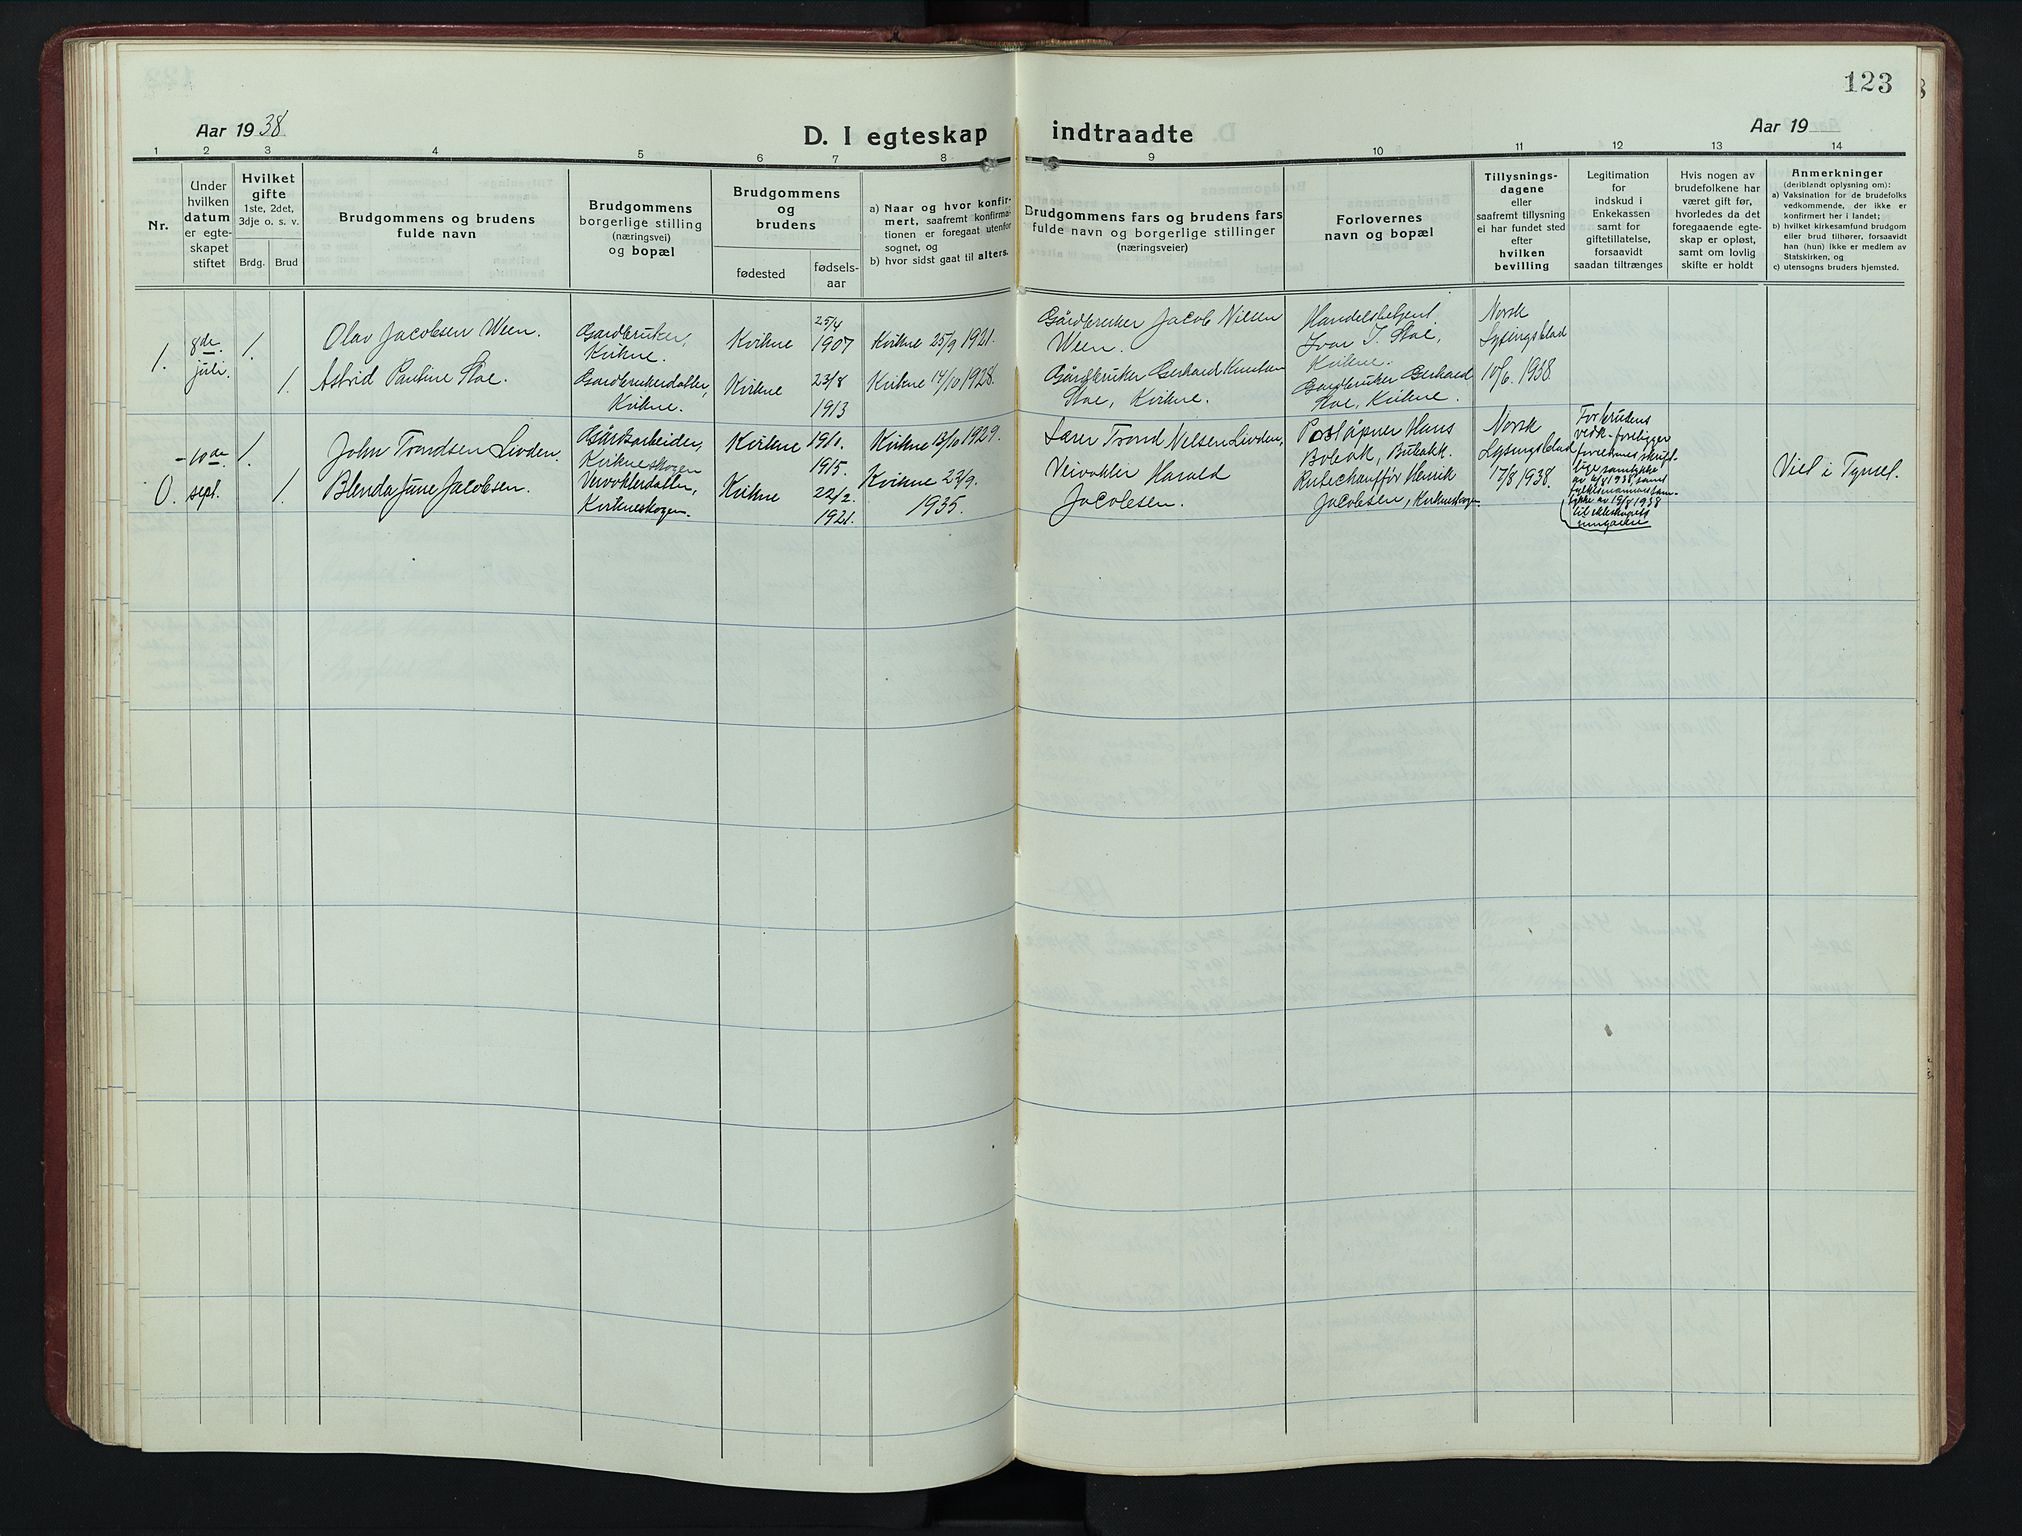 123
Aar 1938
D. I egteskap indtraadte
Aar 19
1 2 3 4 5 6 7 8 9 10 11 12 13 14
Nr.
Under
hvilken
datum
er egte-
skapet
stiftet
Hvilket
gifte
1ste, 2det,
3dje o. s. v.
Brdg.
Brud
Brudgommens og brudens
fulde navn
Brudgommens
borgerlige stilling
(næringsvei)
og bopæl
Brudgommens
og
brudens
fødested
fødsels-
aar
a) Naar og hvor konfir-
mert, saafremt konfirma-
tionen er foregaat utenfor
sognet, og
b) hvor sidst gaat til alters.
Brudgommens fars og brudens fars
fulde navn og borgerlige stillinger
(næringsveier)
Forlovernes
navn og bopæl
Tillysnings-
dagene
eller
saafremt tillysning
ei har fundet sted
efter
hvilken
bevilling
Legitimation
for
indskud i
Enkekassen
samt for
giftetillatelse,
forsaavidt
saadan tiltrænges
Hvis nogen av
brudefolkene har
været gift før,
hvorledes da det
foregaaende egte-
skap er opløst,
samt om lovlig
skifte er holdt
Anmerkninger
(deriblandt oplysning om):
a) Vaksination for de brudefolks
vedkommende, der ikke er
konfirmert her i landet;
b) hvilket kirkesamfund brudgom
eller brud tilhører, forsaavidt
han (hun) ikke er medlem av
Statskirken, og
c) utensogns bruders hjemsted.
1.
8de
juli.
1.
Olav Jacobsen Ween.
Gaardbruker,
Kvikne.
Kvikne
25/4
1907
Kvikne 25/9 1921.
Gårdbruker Jacob Nilsen
Ween.
Handelsbetjent
Ivar J. Stai,
Kvikne.
Norsk
Lysingsblad
10/6. 1938.
1.
Astrid Pauline Stae.
Gardbrukerdatter,
Kvikne.
Kvikne
23/8
1913
Kvikne 14/10 1928.
Gårdbruker Gerhard Knutsen
Stae, Kvikne.
Gardbruker Gerhard
Stae, Kvikne.
0.
-10de
sept.
1.
John Trondsen Livden.
Gårdsarbeider,
Kvikneskogen
Kvikne
19/1.
1915.
Kvikne 13/10 1929.
Lærer Trond Nilsen Livden,
Poståpner Hans
Boleak, Buteakk.
Norsk
Lysingsblad
17/8 1938.
For brudens
vedk. foreligger
foreldrenes skrift-
lige samtykke
av 4/8 1938, samt
fylkesmannens sam-
tykke av 19/8 1938
til ekteskapets
inngåelse
Viet i Tynset.
1.
Blenda Jane Jacobsen.
Veivokterdatter,
Kvikneskogen.
Kvikne
22/2.
1921.
Kvikne 22/9.
1935.
Veivokter Harald
Jacobsen.
Rutechauffør Henrik
Jacobsen, Kvikneskogen